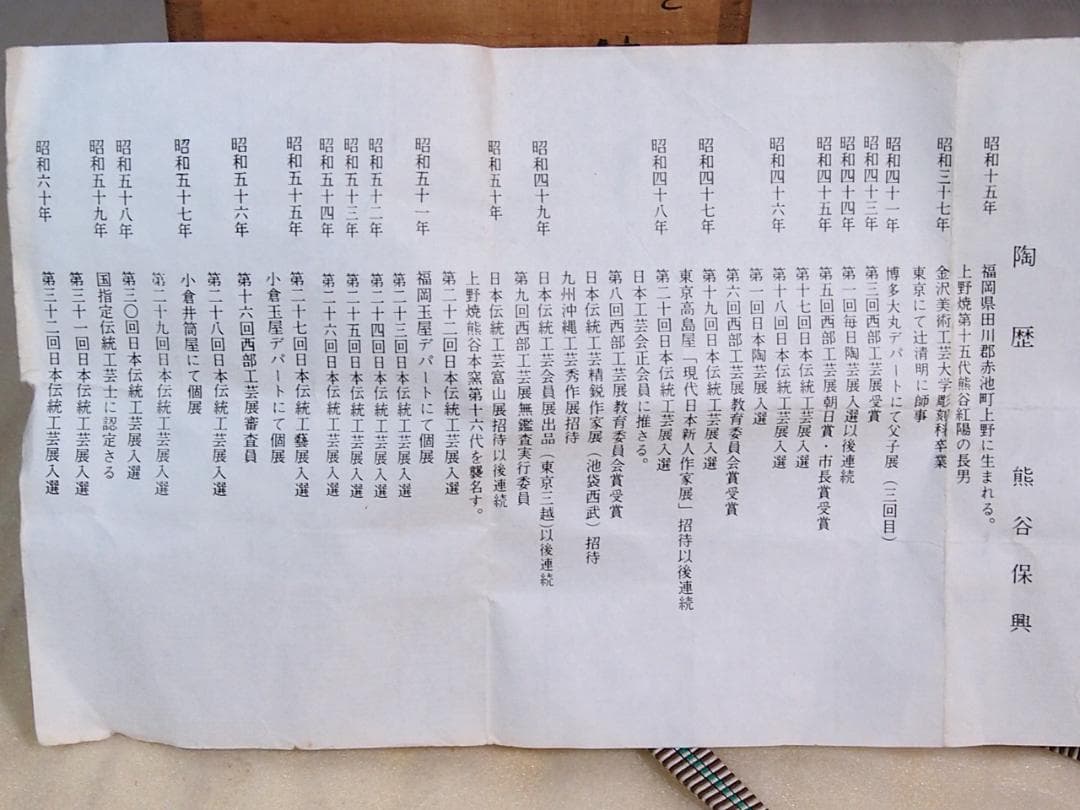 陶歴 熊谷保興
昭和十五年 福岡県田川郡赤池町上野に生まれる。
上野焼第十五代熊谷紅陽の長男
昭和三十七年 金沢美術工芸大学彫刻科卒業
東京にて辻清明に師事
昭和四十一年 博多大丸デパートにて父子展（三回目）
昭和四十三年 第三回西部工芸展受賞
昭和四十四年 第一回毎日陶芸展入選以後連続
昭和四十五年 第五回西部工芸展朝日賞・市長賞受賞
第十七回日本伝統工芸展入選
昭和四十六年 第十八回日本伝統工芸展入選
第一回日本陶芸展入選
第六回西部工芸展教育委員会賞受賞
昭和四十七年 第十九回日本伝統工芸展入選
東京高島屋「現代日本新人作家展」招待以後連続
昭和四十八年 第二十回日本伝統工芸展入選
日本工芸会正会員に推さる。
第八回西部工芸展教育委員会賞受賞
日本伝統工芸精鋭作家展（池袋西武）招待
九州沖縄工芸秀作展招待
昭和四十九年 日本伝統工芸会員展出品（東京三越）以後連続
第九回西部工芸展無鑑査実行委員
昭和五十年 日本伝統工芸富山展招待以後連続
上野焼熊谷本窯第十六代を襲名す。
第二十二回日本伝統工芸展入選
昭和五十一年 福岡玉屋デパートにて個展
第二十三回日本伝統工芸展入選
昭和五十二年 第二十四回日本伝統工芸展入選
昭和五十三年 第二十五回日本伝統工芸展入選
昭和五十四年 第二十六回日本伝統工芸展入選
昭和五十五年 第二十七回日本伝統工藝展入選
小倉玉屋デパートにて個展
昭和五十六年 第十六回西部工芸展審査員
第二十八回日本伝統工芸展入選
昭和五十七年 小倉井筒屋にて個展
第二十九回日本伝統工芸展入選
昭和五十八年 第三〇回日本伝統工芸展入選
昭和五十九年 国指定伝統工芸士に認定さる
第三十一回日本伝統工芸展入選
昭和六十年 第三十二回日本伝統工芸展入選